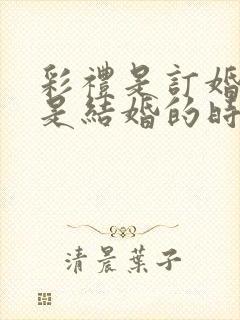 彩禮是訂婚
是結婚的時
清晨葉子